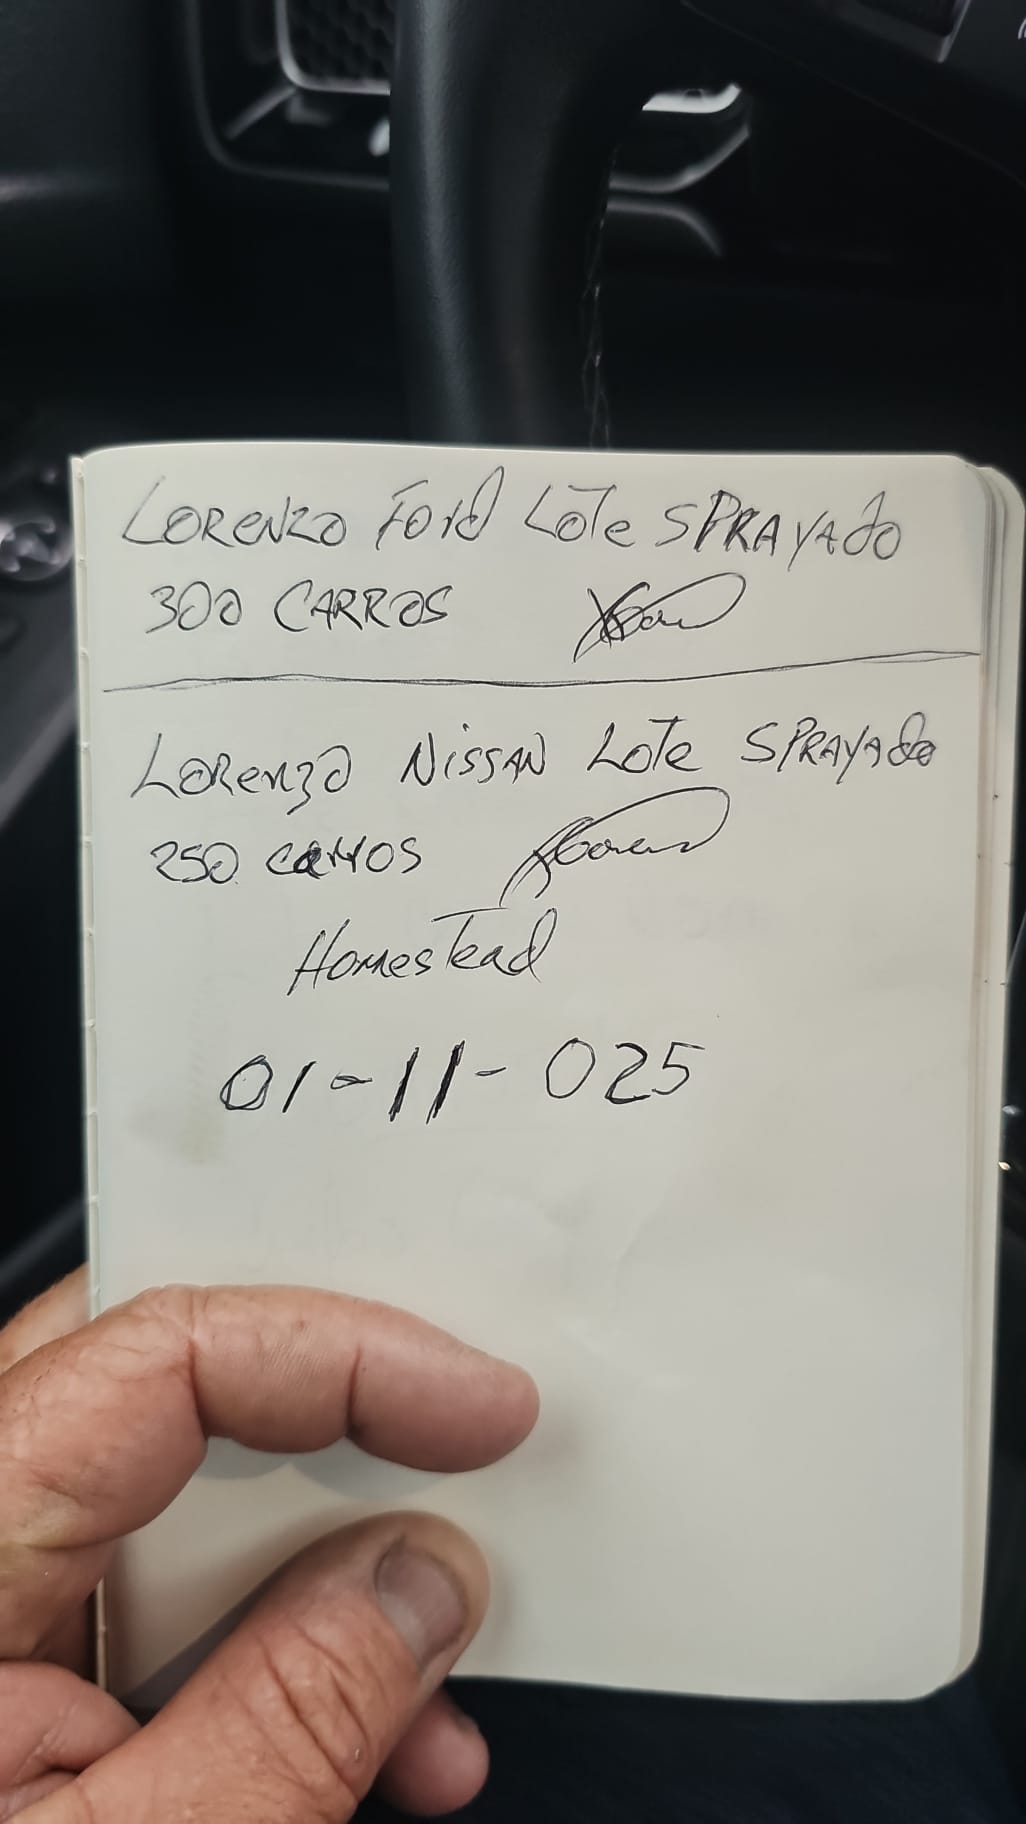 LORENZO Ford LoTe SPRAYAdo
300 CARROS
LORenzo NissAN LoTe SPRAYAdo
250 carros
HomesTead
01-11-025